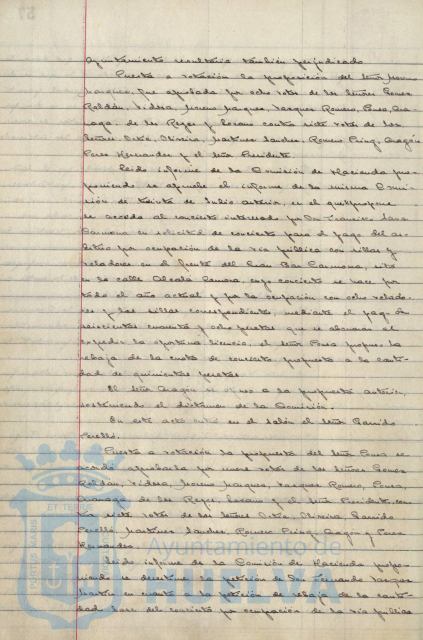 Ayuntamiento resultaria también perjudicado
Puesta a votación la proposición del señor Moreno
Marquez, fue aprobada por ocho votos de los señores Gomez
Roldán, Vidosa, Moreno Marquez, Vazquez Romero, Ponce,
de los Reyes y Lozano contra siete votos de los
señores Ortiz, Oliveira, Martinez Sanchez, Romero Pérez, Aragón
Perez Hernandez y el señor Presidente.
Leido informe de la Comisión de Hacienda pro-
poniendo se apruebe el informe de la misma Comi-
sión de treinta de Julio anterior, en el que propone
se acceda al concierto interesado por Don Francisco
Carmona en solicitud de concierto para el pago del ar-
bitrio por ocupación de la via pública con sillas y
veladores en el frente del Gran Bar Carmona, sito
en la calle Alcalá Zamora, cuyo concierto se hace por
todo el año actual y por la ocupación con ocho velado-
res y las sillas correspondientes, mediante el pago de
seiscientas cuarenta y ocho pesetas que se abonaran al
expedir la oportuna licencia, el señor Ponce propuso la
rebaja de la cuota de concierto propuesta a la canti-
dad de quinientas pesetas.
El señor Aragón se opuso a la propuesta anterior,
sosteniendo el dictamen de la Comisión.
En este acto entró en el salón el señor Garrido
Perelló.
Puesta a votación la propuesta del señor Ponce se
acordó aprobarla por nueve votos de los señores Gomez
Roldán, Vidosa, Moreno Marquez, Vazquez Romero, Ponce,
de los Reyes, Lozano y el señor Presidente, con-
tra siete votos de los señores Ortiz, Oliveira, Garrido
Perelló, Martinez Sanchez, Romero Pérez, Aragon y Perez
Hernandez.
Leido informe de la Comisión de Hacienda propo-
niendo se desestime la petición de Don Fernando Vazquez
Martin en cuanto a la petición de rebaja de la canti-
dad base del concierto por ocupación de la via pública
Ayuntamiento de
HUELVA